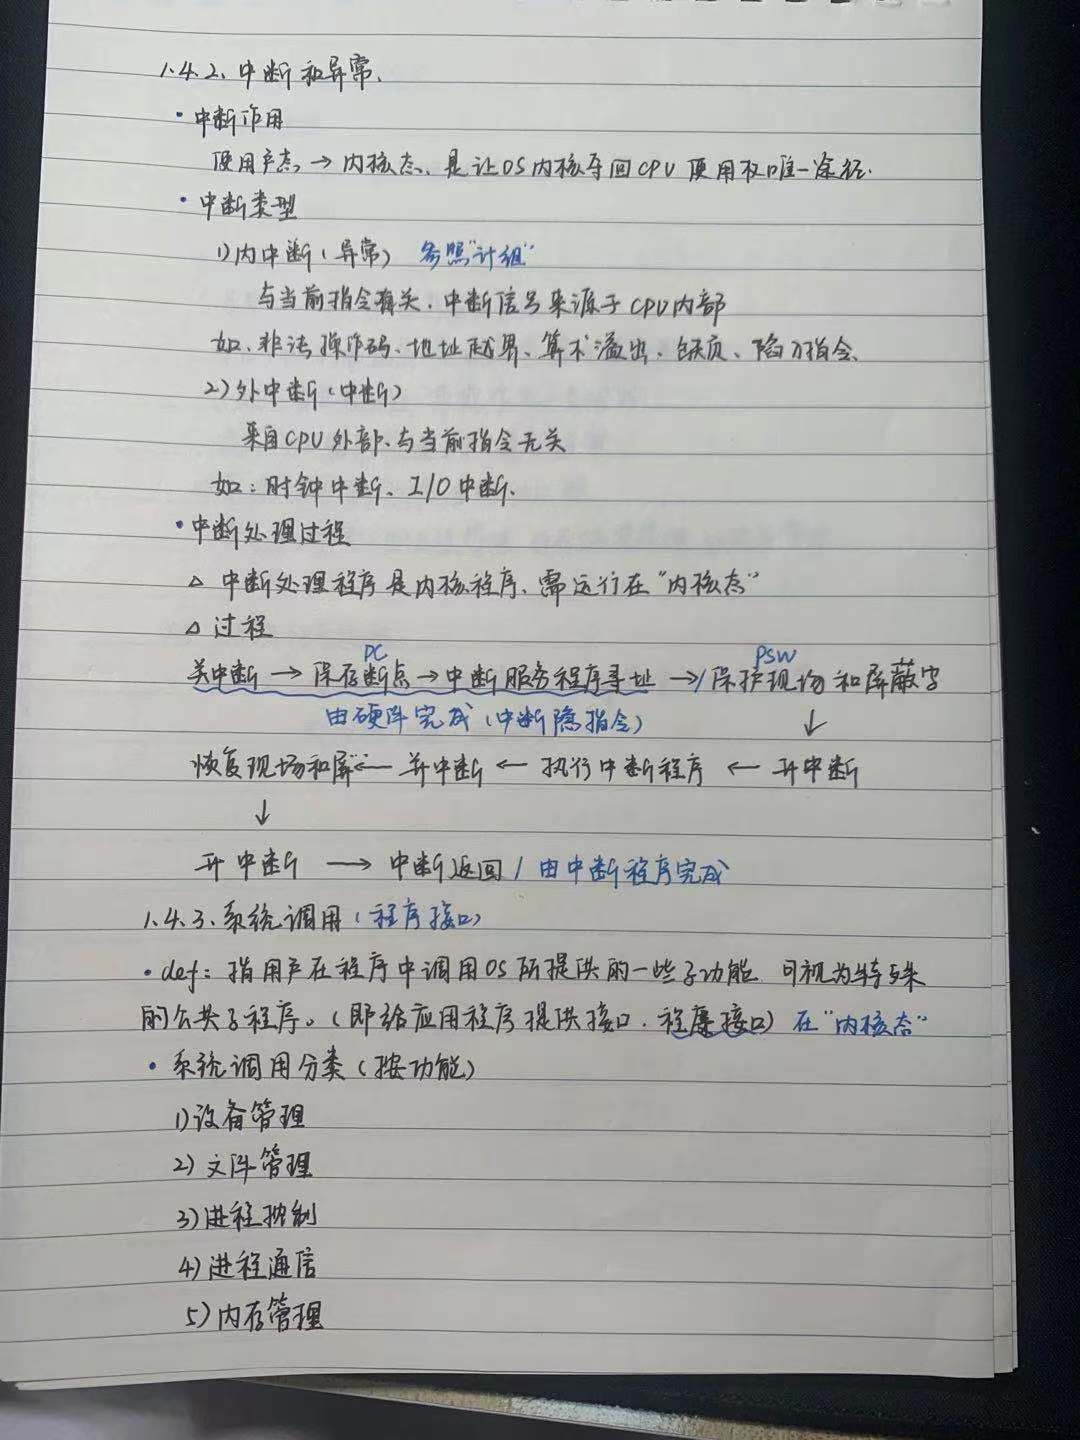 1.4.2、中断和异常、
· 中断作用
使用户态 → 内核态、是让OS内核夺回CPU使用权唯一途径.
· 中断类型
1)内中断(异常) 参照"计组"
与当前指令有关、中断信号来源于CPU内部
如、非法操作码、地址越界、算术溢出、缺页、陷入指令、
2)外中断(中断)
来自CPU外部、与当前指令无关
如：时钟中断、I/O中断、
· 中断处理过程
△ 中断处理程序是内核程序、需运行在"内核态"
△ 过程
PC PSW
关中断 → 保存断点 → 中断服务程序寻址 → / 保护现场和屏蔽字
由硬件完成(中断隐指令) ↓
恢复现场和屏~ ← 关中断 ← 执行中断程序 ← 开中断
↓
开中断 → 中断返回 / 由中断程序完成
1.4.3.系统调用(程序接口)
· def：指用户在程序中调用OS所提供的一些子功能 可视为特殊
的公共子程序。(即给应用程序提供接口、程序接口) 在"内核态"
· 系统调用分类(按功能)
1)设备管理
2)文件管理
3)进程控制
4)进程通信
5)内存管理